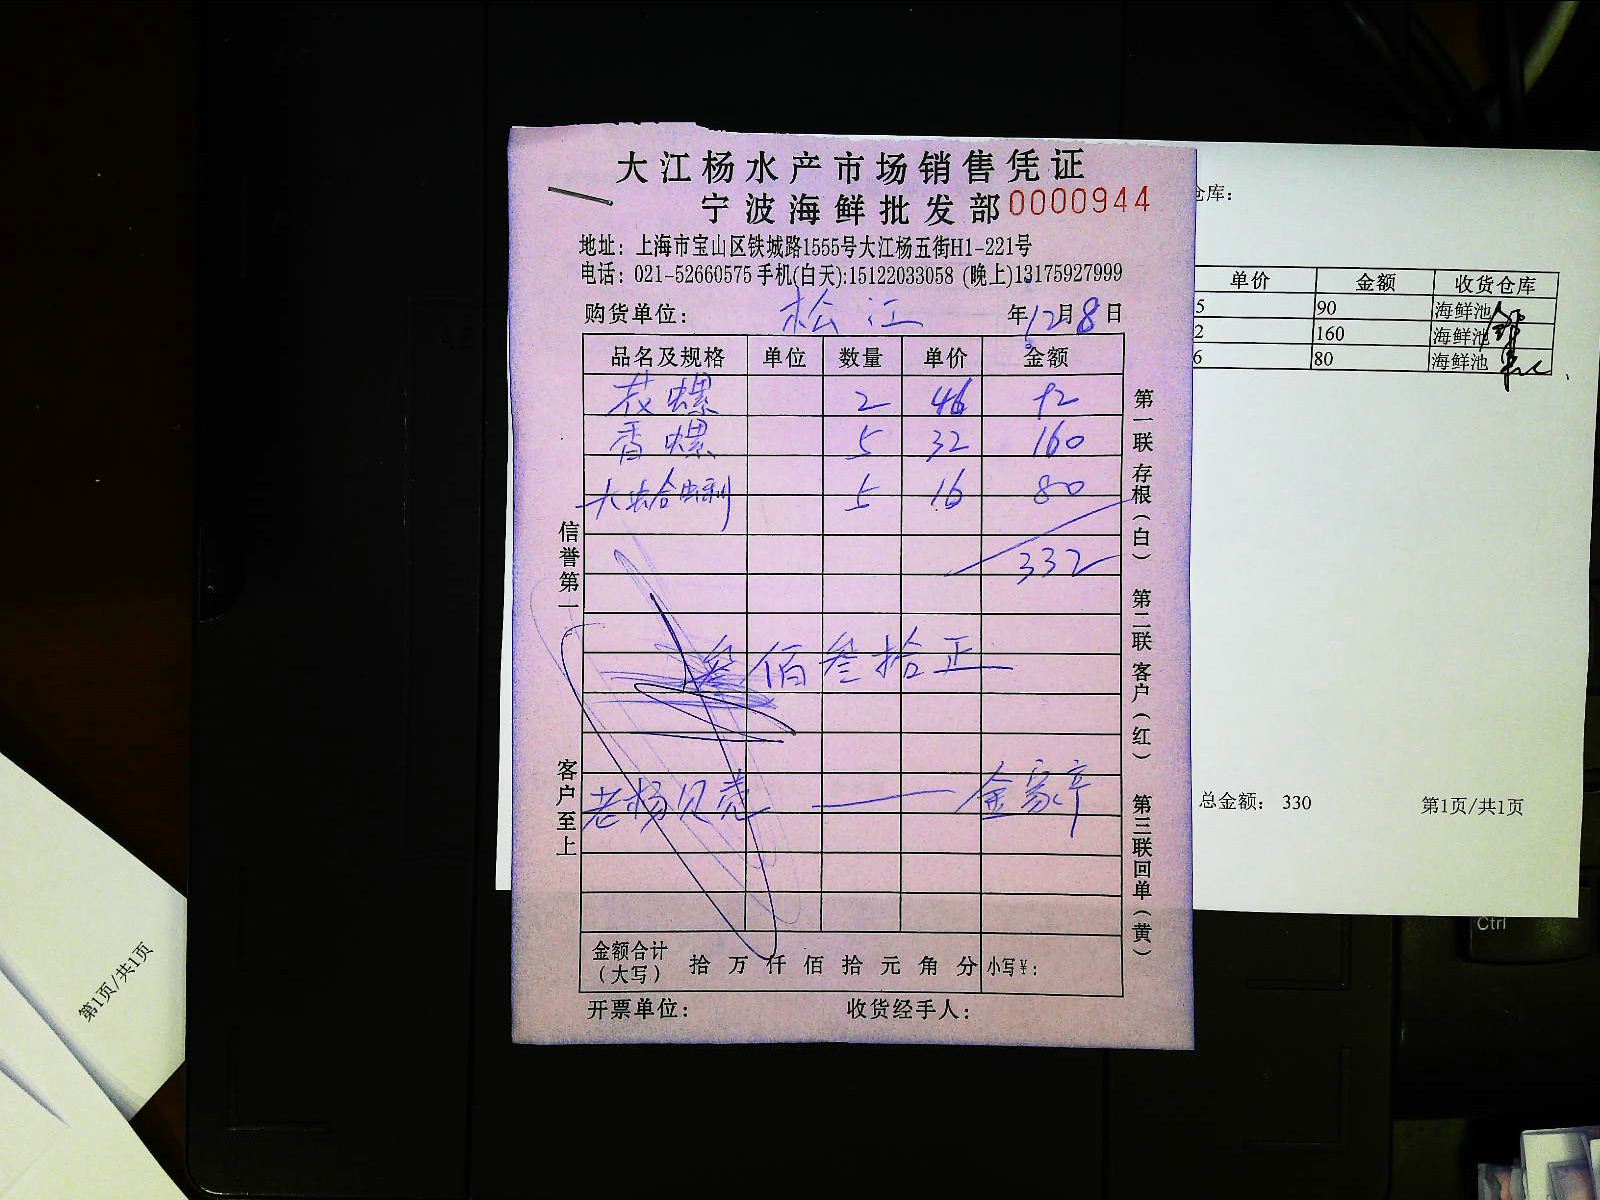 大江杨水产市场销售凭证
宁波海鲜批发部 0000944
地址：上海市宝山区铁城路1555号大江杨五街H1-221号
电话：021-52660575 手机(白天):15122033058 (晚上)13175927999
购货单位： 松江 年12月8日
品名及规格 单位 数量 单价 金额
花螺 2 46 92
香螺 5 32 160
大 5 16 80
332
叁佰叁拾正
老杨贝壳 —— 金家
金额合计（大写） 拾 万 仟 佰 拾 元 角 分 小写¥：
开票单位： 收货经手人：
信誉第一 客户至上
第一联 存根（白） 第二联 客户（红） 第三联 回单（黄）
仓库：
单价 金额 收货仓库
5 90 海鲜池
2 160 海鲜池
6 80 海鲜池
总金额： 330 第1页/共1页
第1页/共1页
Ctrl